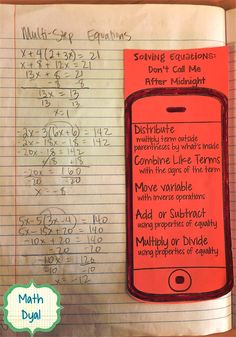 Multi-Step Equations
x + 4(2+3x) = 21
x + 8 + 12x = 21
13x + 8 = 21
-8 -8
13x = 13
13 13
x = 1
-2x - 3(6x + 6) = 142
-2x - 18x - 18 = 142
-20x - 18 = 142
+18 +18
-20x = 160
-20 -20
x = -8
5x - 5(3x - 4) = 140
-10x + 20 = 140
-20 -20
-10 -10
x = -12
Solving Equations:
Don't Call Me
After Midnight
Distribute
multiply term outside
parentheses by what's inside
Combine Like Terms
with the signs of the term
Move variable
with inverse operations
Add or Subtract
using properties of equality
Multiply or Divide
using properties of equality
Math
Dyal